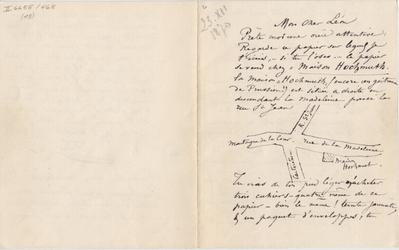 II 6655 / 468
(48)
23 XII
1870
Mon cher Léon
Prête moi une oreille attentive
Regarde ce papier sur lequel je
t'écris, - si tu l'oses... le papier
se vend chez « Maison Hochmuth.
La maison Hochmuth (encore un goîtreux
de Prussien!) est située à droite en
descendant la Madeleine, passé la
rue St Jean
R. St Jean
Montagne de la Cour
rue de la Madeleine
Maison
Hochmuth
Tu vas de ton pied léger m'acheter
trois cahiers - quatre même de ce
papier - bon le même! teinte jaunâtre,
& un paquet d'enveloppes; tu